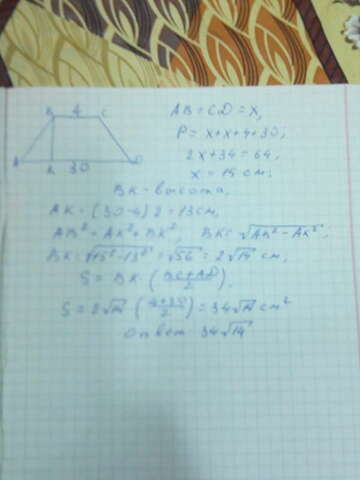 B 4 C
A K 30 D
AB = CD = x,
P = x + x + 4 + 30;
2x + 34 = 64,
x = 15 см;
BK - высота,
AK = (30-4) 2 = 13 см,
AB² = AK² + BK², BK = √AB² - AK²,
BK = √15² - 13² = √56 = 2√14 см,
S = BK · (BC+AD/2),
S = 2√14 (4+30/2) = 34√14 см²
Ответ 34√14